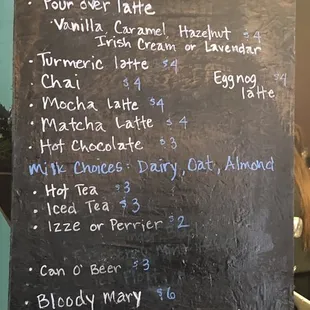 · Pour over latte
· Vanilla, Caramel, Hazelnut $4
Irish Cream or Lavendar
· Turmeric latte $4
· Chai $4
Eggnog $4
latte
· Mocha latte $4
· Matcha Latte $4
· Hot Chocolate $3
Milk Choices: Dairy, Oat, Almond
· Hot Tea $3
· Iced Tea $3
· Izze or Perrier $2
· Can O' Beer $3
· Bloody Mary $6